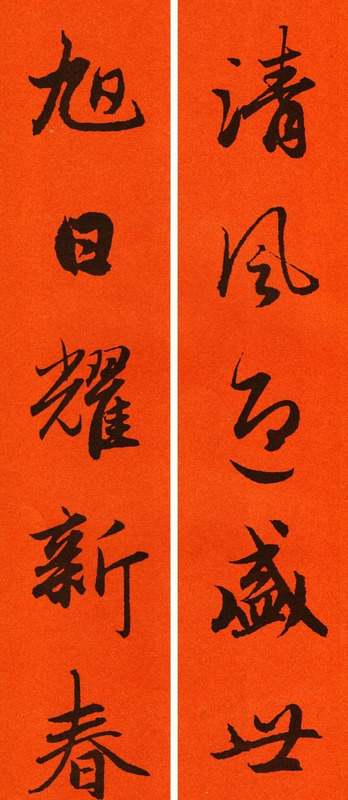 清风迎盛世
旭日耀新春